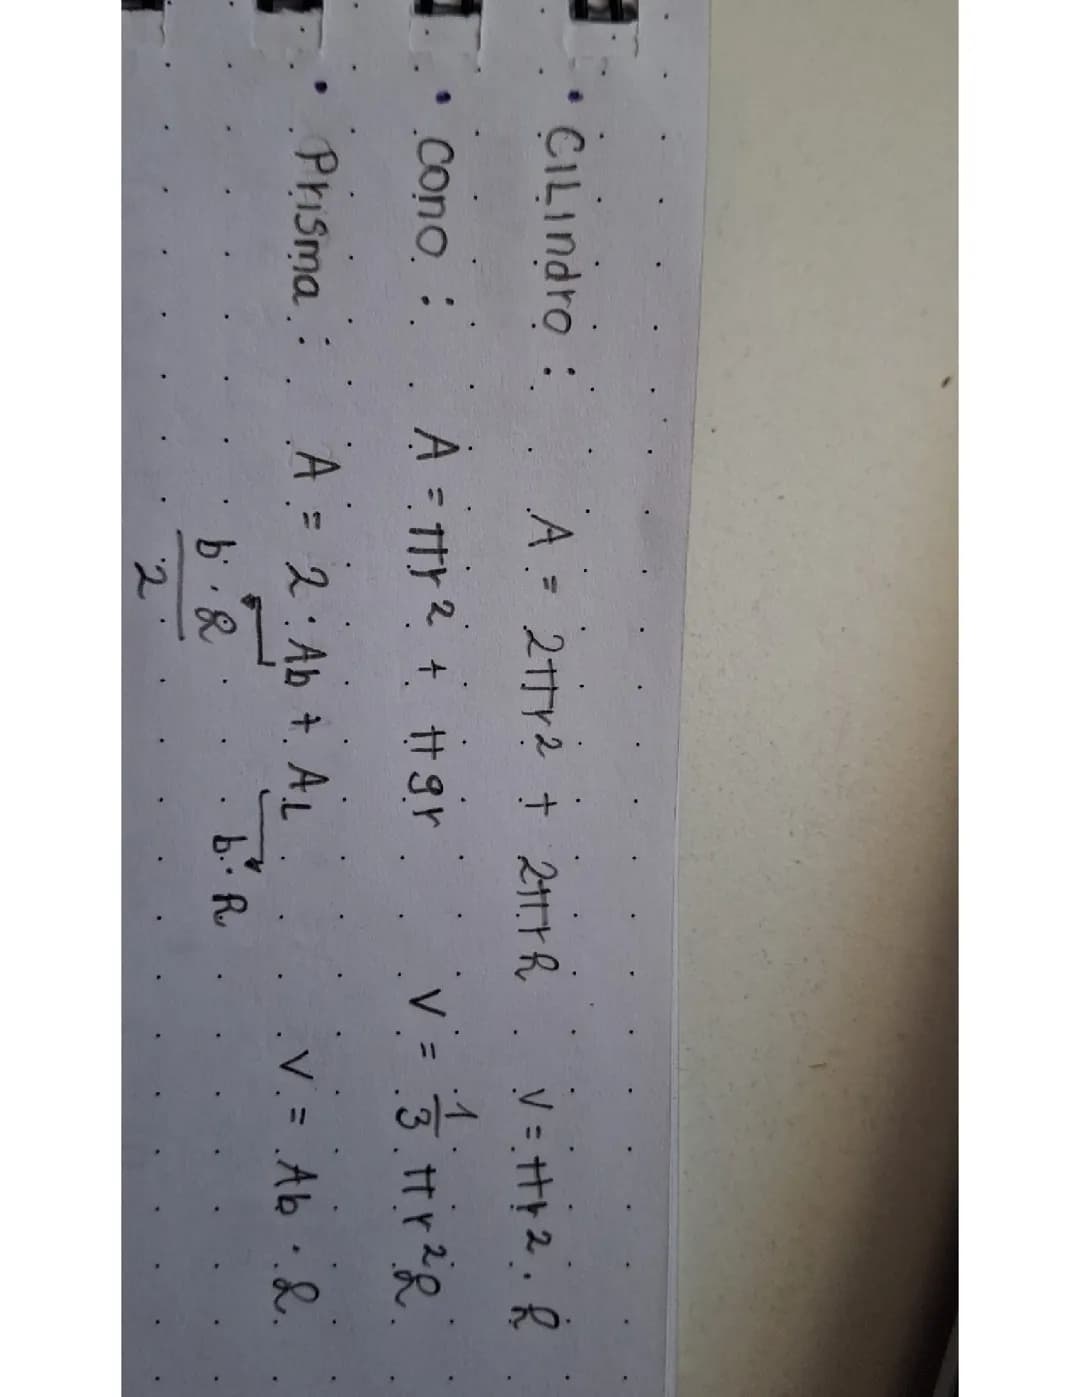 • CILindro: A = 2πr² + 2πrh V = πr² · h
• cono: A = πr² + πgr V = 1/3 πr²h
• Prisma: A = 2 · Ab + AL V = Ab · h
b · h b · h
2